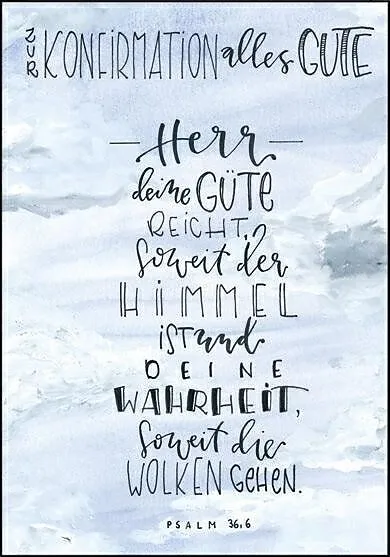 ZUR KONFIRMATION alles GUTE
Herr
deine GÜTE
REICHT,
soweit der
HIMMEL
IST und
DEINE
WAHRHEIT,
soweit die
WOLKEN GEHEN.
PSALM 36,6